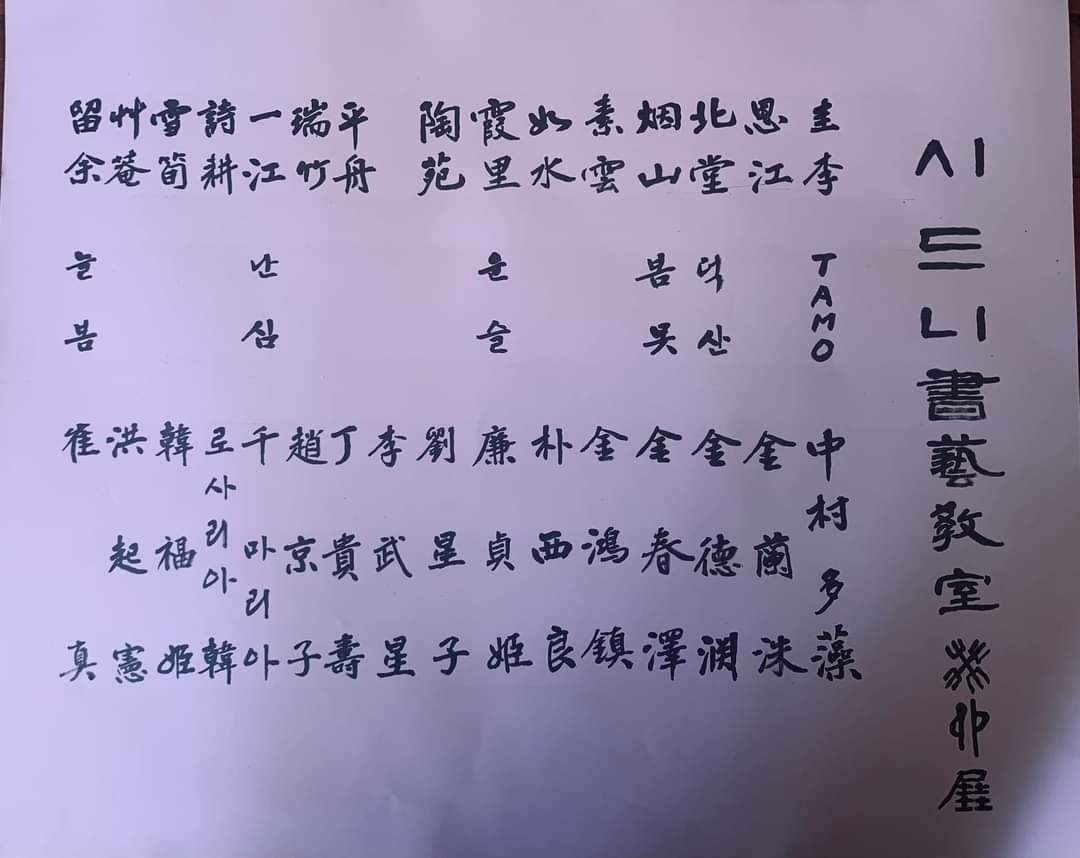 시드니書藝敎室癸卯展
圭李 TAMO 中村多藻
恩江 金蘭洙
北堂 덕산 金德潤
烟山 봄못 金春澤
素雲 金鴻鎮
如水 朴西良
霞里 윤슬 廉貞姬
陶苑 劉星子
李武星
平舟 丁貴壽
瑞竹 趙京子
一江 난심 千마리아
詩耕 로사리아韓
雪筍 韓福姬
艸菴 洪起憲
留余 늘봄 崔真